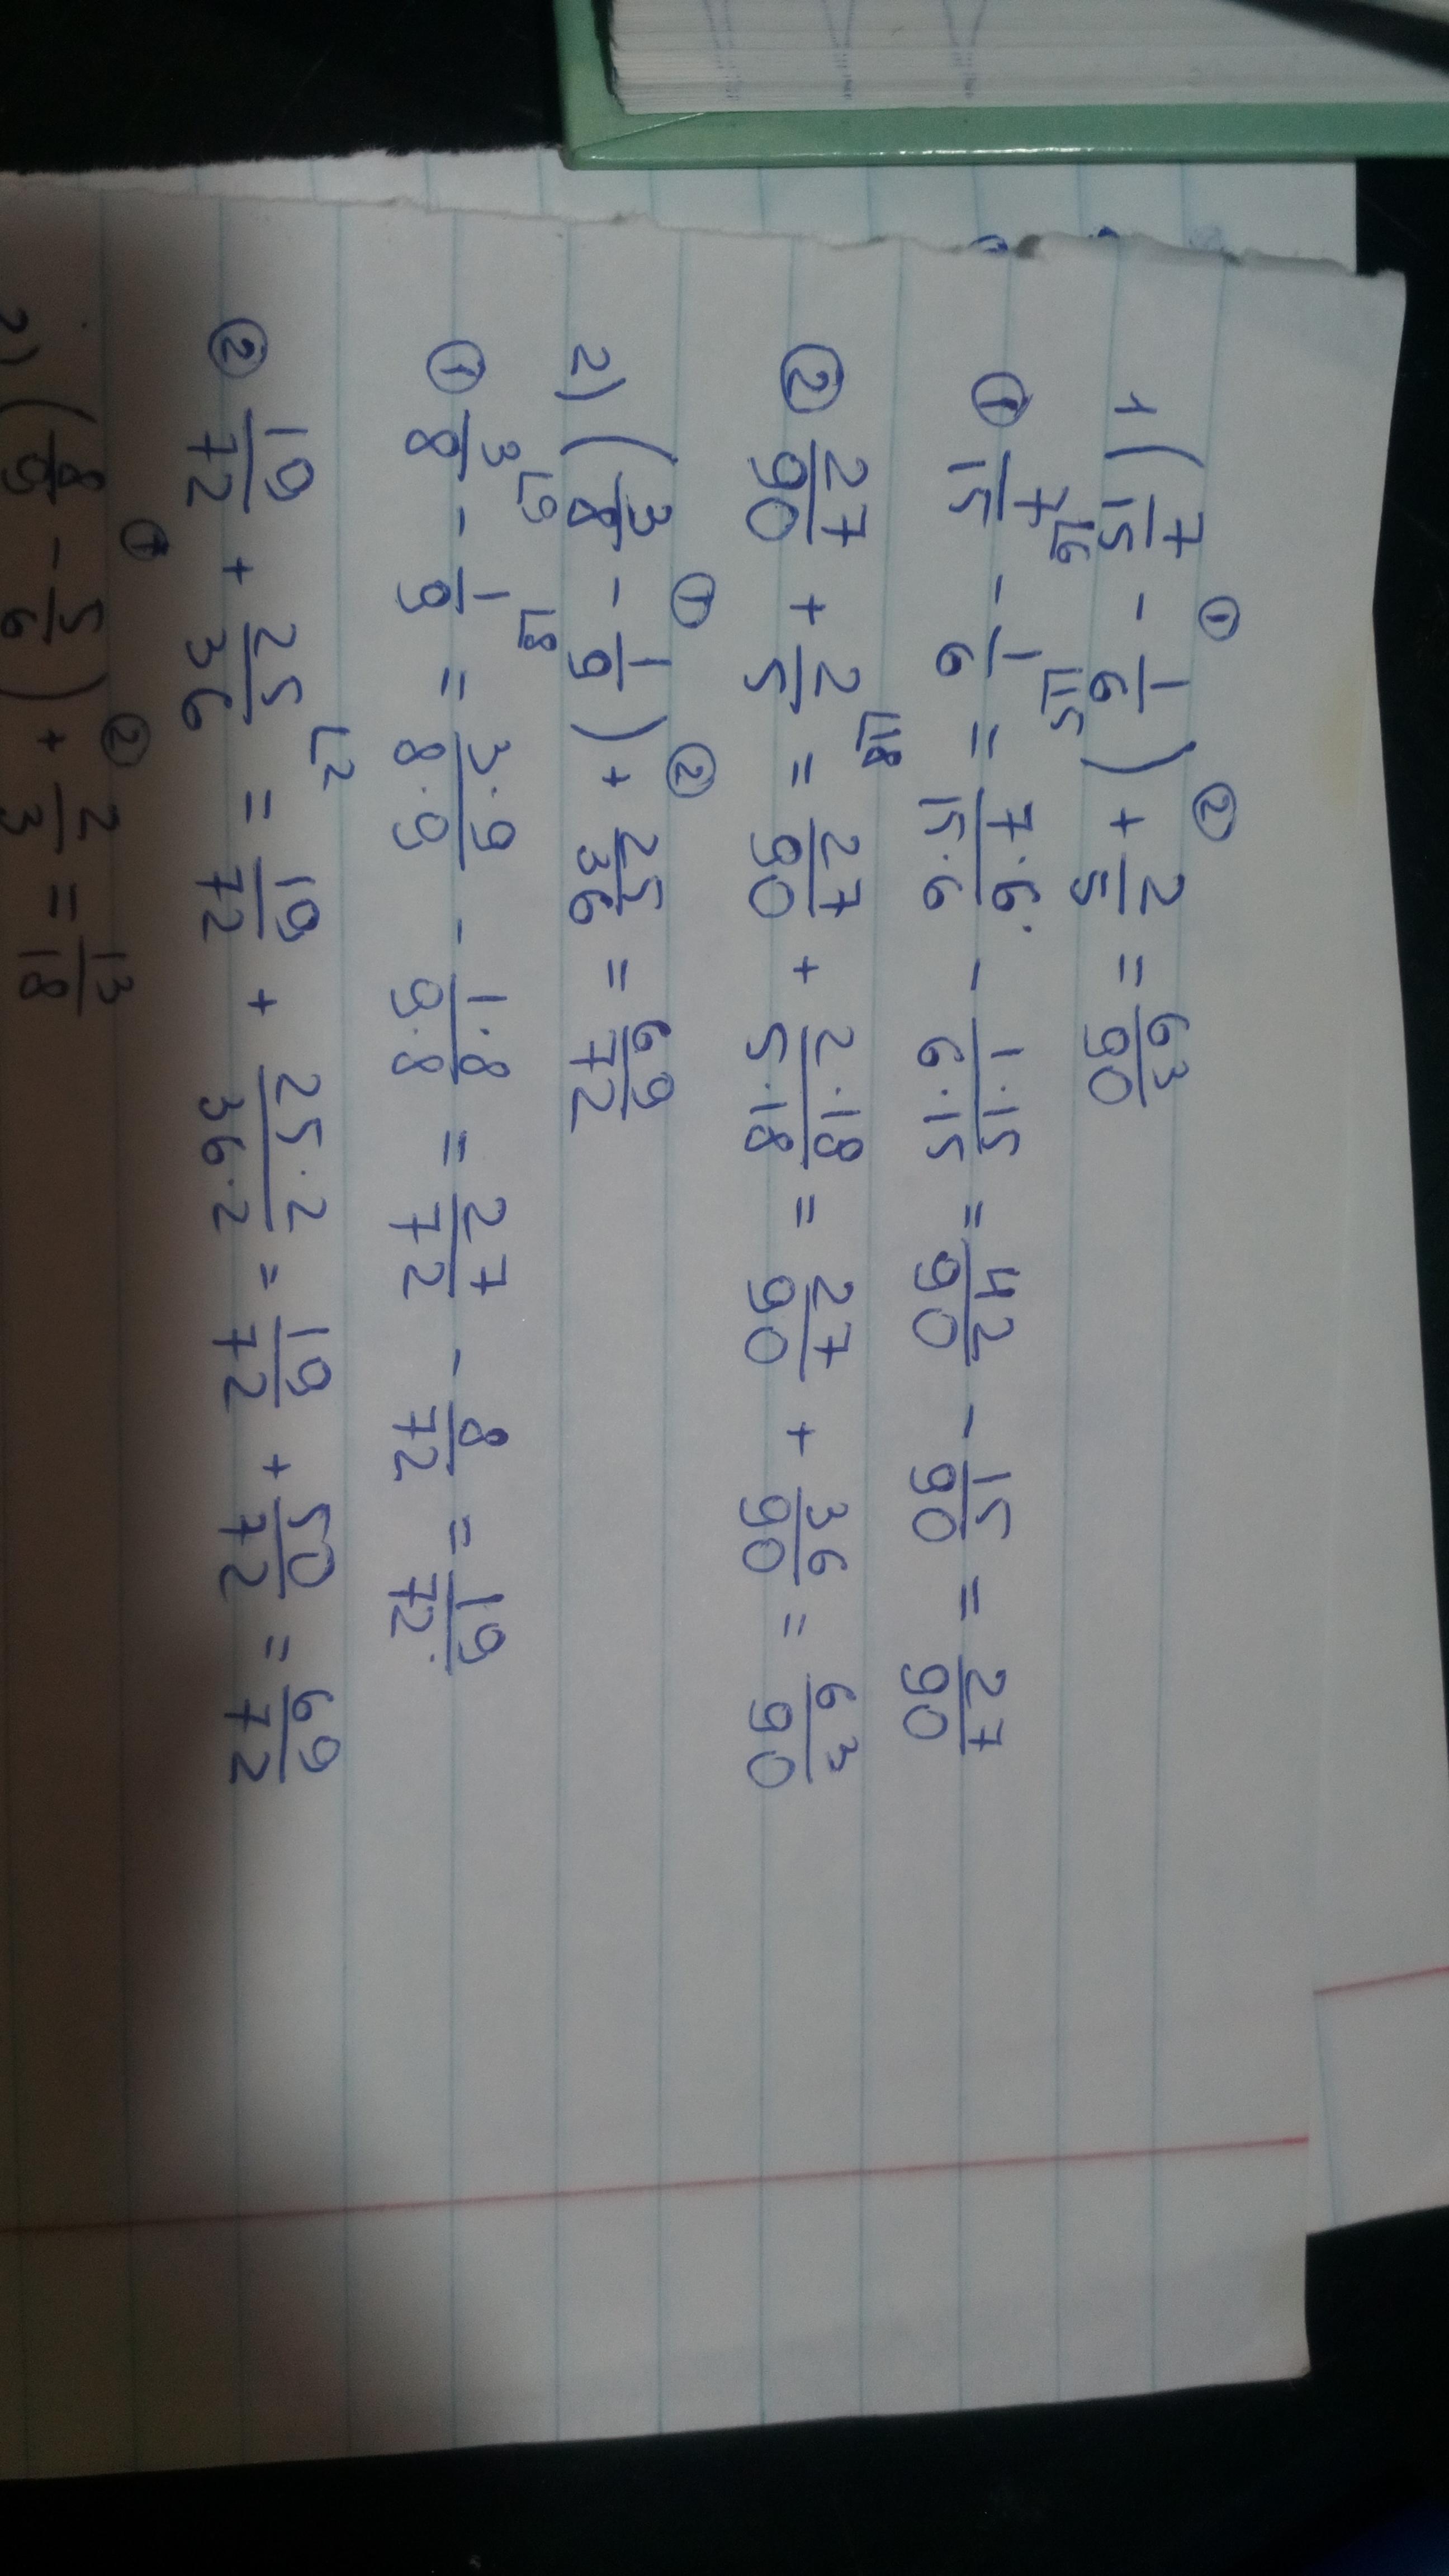 ① ②
1(7/15 - 1/6) + 2/5 = 63/90
① 7/15 ⌊6 - 1/6 ⌊15 = 7·6/15·6 - 1·15/6·15 = 42/90 - 15/90 = 27/90
② 27/90 + 2/5 ⌊18 = 27/90 + 2·18/5·18 = 27/90 + 36/90 = 63/90
① ②
2) (3/8 - 1/9) + 25/36 = 69/72
① 3/8 ⌊9 - 1/9 ⌊8 = 3·9/8·9 - 1·8/9·8 = 27/72 - 8/72 = 19/72
② 19/72 + 25/36 ⌊2 = 19/72 + 25·2/36·2 = 19/72 + 50/72 = 69/72
① ②
2) (8/9 - 5/6) + 2/3 = 13/18